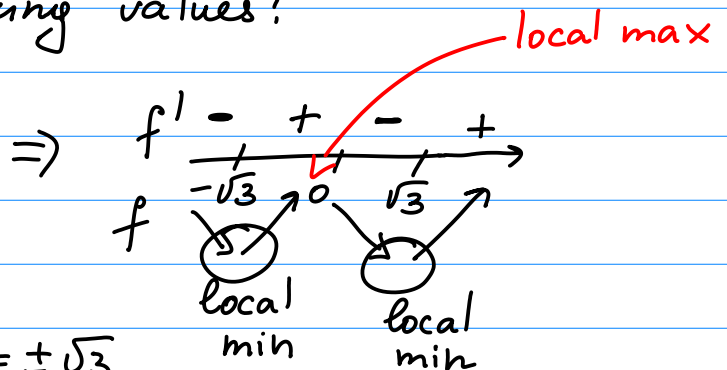 ing values?
local max
=> f' - + - +
-√3 0 √3
f
local min
local min
= ±√3